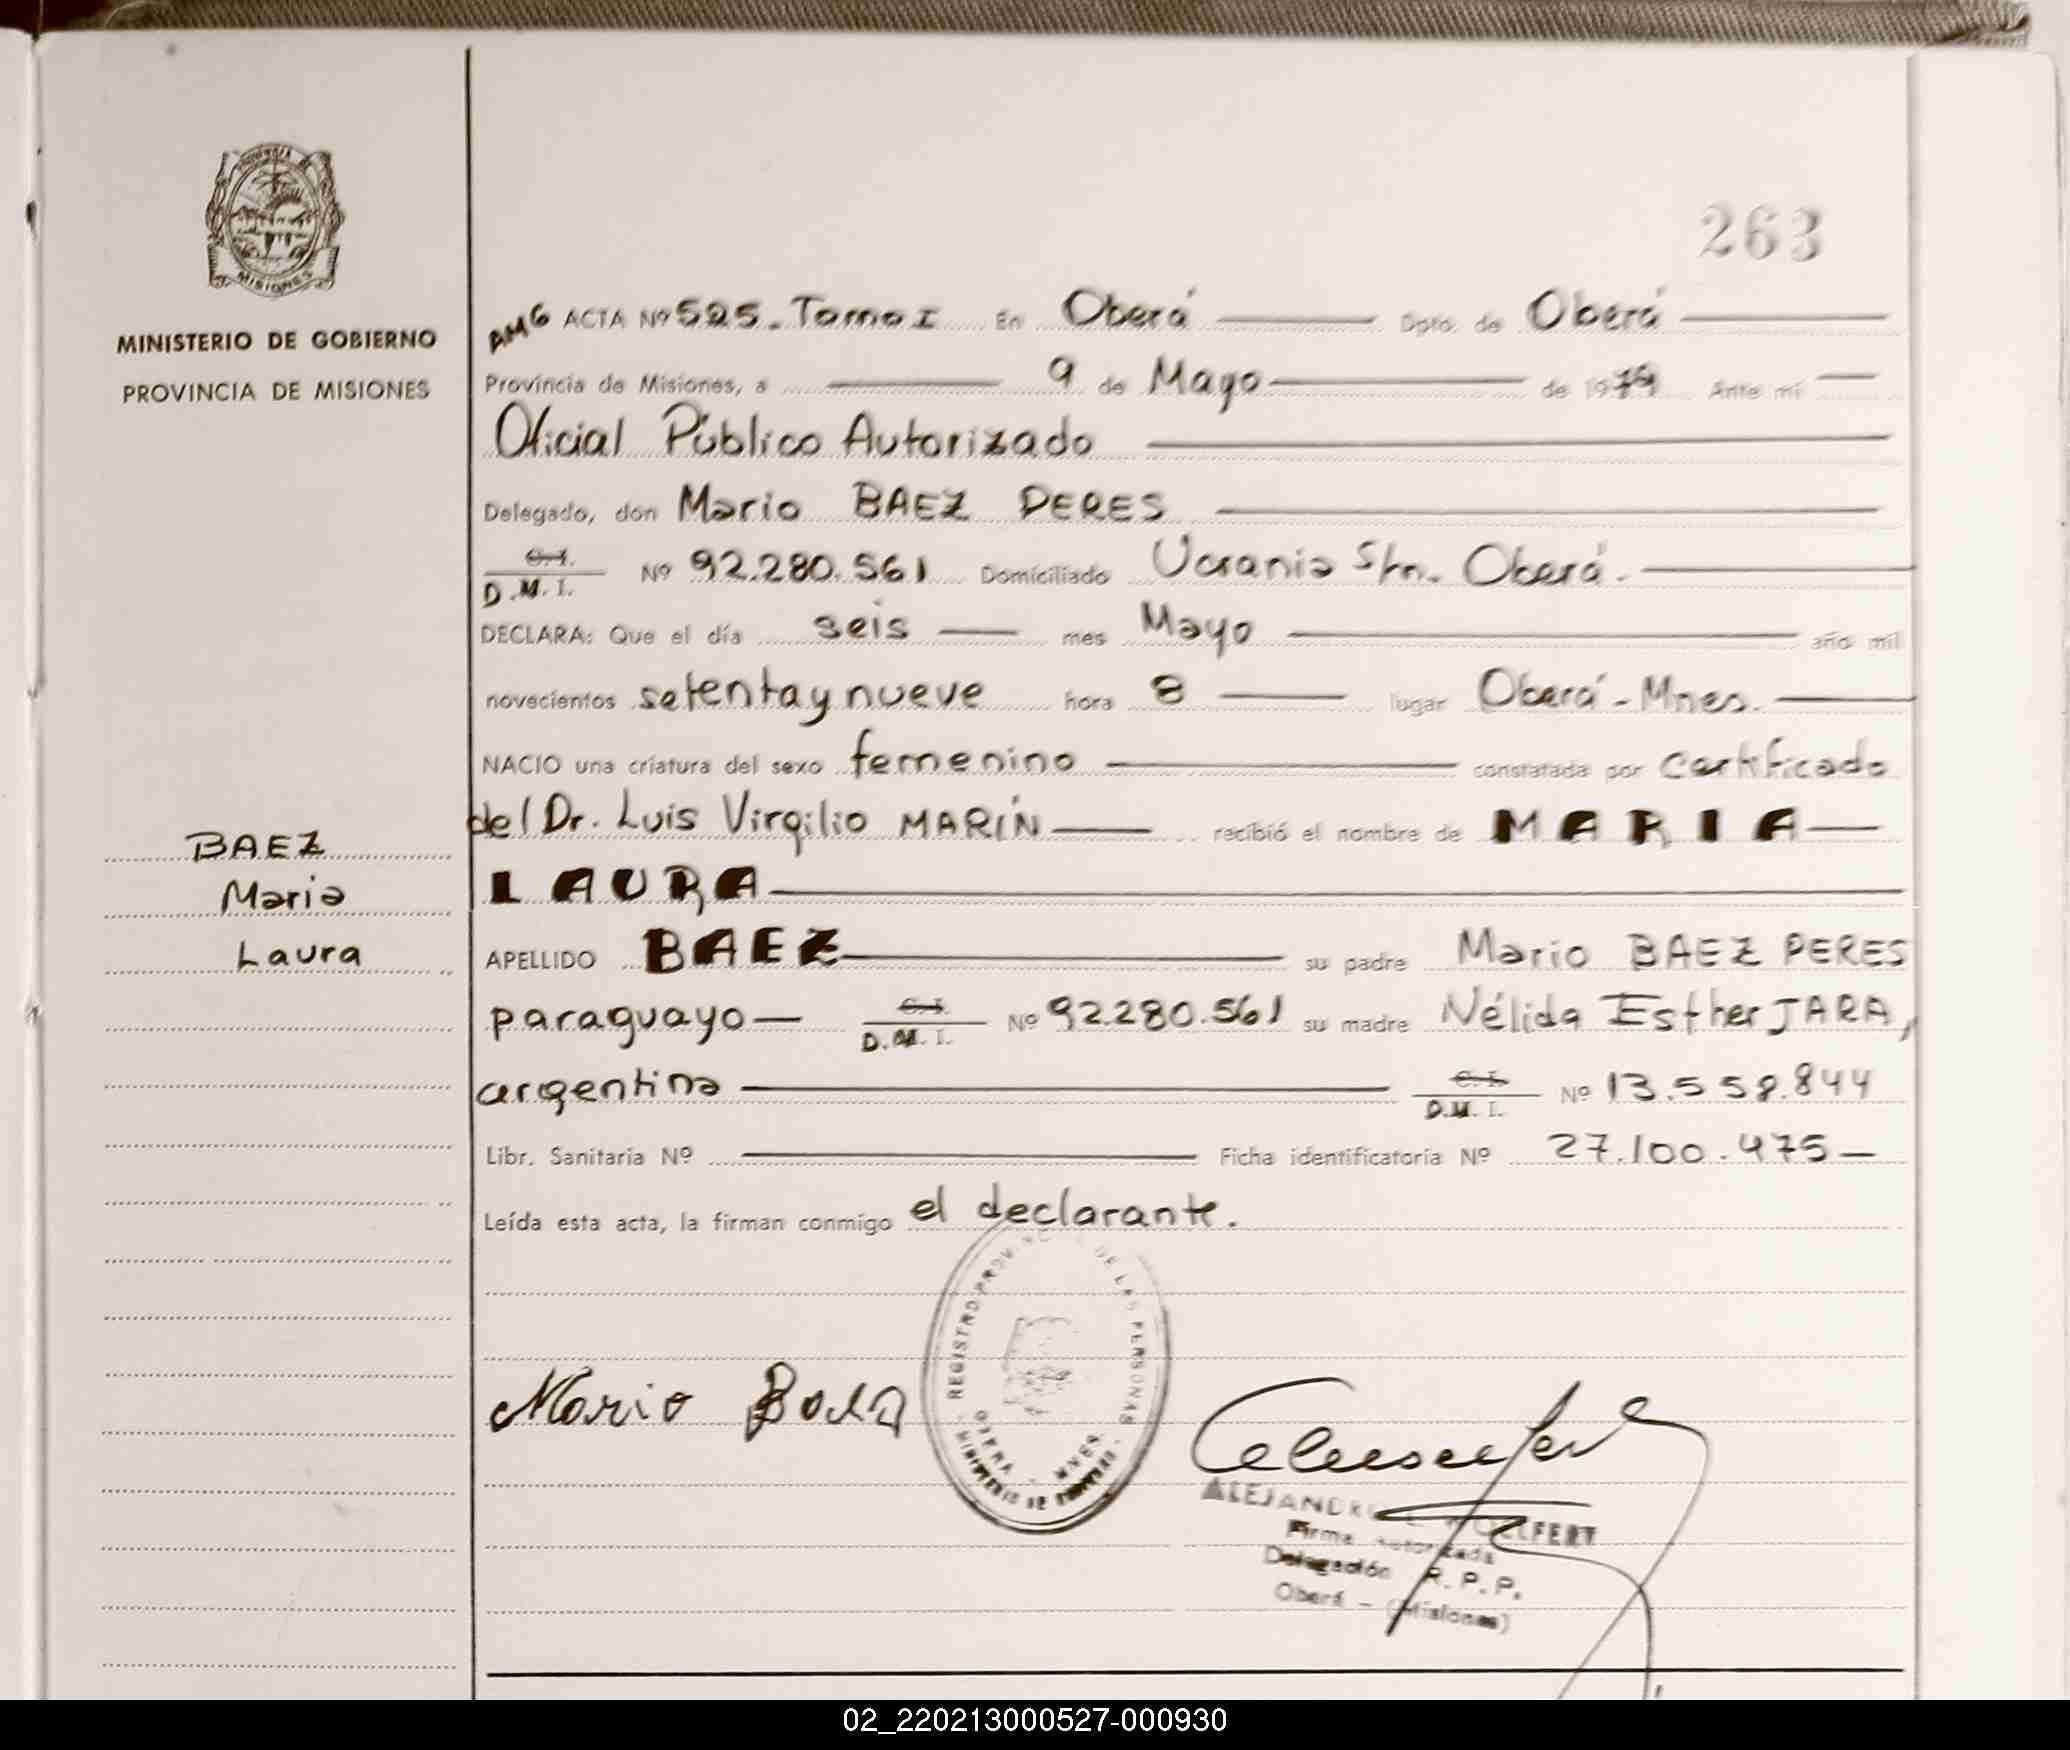 263
PROVINCIA DE
MISIONES
MINISTERIO DE GOBIERNO
PROVINCIA DE MISIONES
AMG ACTA Nº 525. Tomo I En Oberá Dpto. de Oberá
Provincia de Misiones, a 9 de Mayo de 1979 Ante mí
Oficial Público Autorizado
Delegado, don Mario BAEZ PERES
C.I.
D.M.I. Nº 92.280.561 Domiciliado Ucrania S/n. Oberá.
DECLARA: Que el día seis mes Mayo año mil
novecientos setenta y nueve hora 8 lugar Oberá - Mnes.
NACIO una criatura del sexo femenino constatada por certificado
del Dr. Luis Virgilio MARÍN recibió el nombre de MARIA
LAURA
BAEZ
Maria
Laura
APELLIDO BAEZ su padre Mario BAEZ PERES
paraguayo C.I. D.M.I. Nº 92.280.561 su madre Nélida Esther JARA,
argentina C.I. D.M.I. Nº 13.558.844
Libr. Sanitaria Nº Ficha identificatoria Nº 27.100.475
Leída esta acta, la firman conmigo el declarante.
REGISTRO PROVINCIAL DE LAS PERSONAS
OBERA - MNES
MINISTERIO DE GOBIERNO
Mario Baez
ALEJANDRO
Firma autorizada
Delegación R.P.P.
Oberá - (Misiones)
02_220213000527-000930